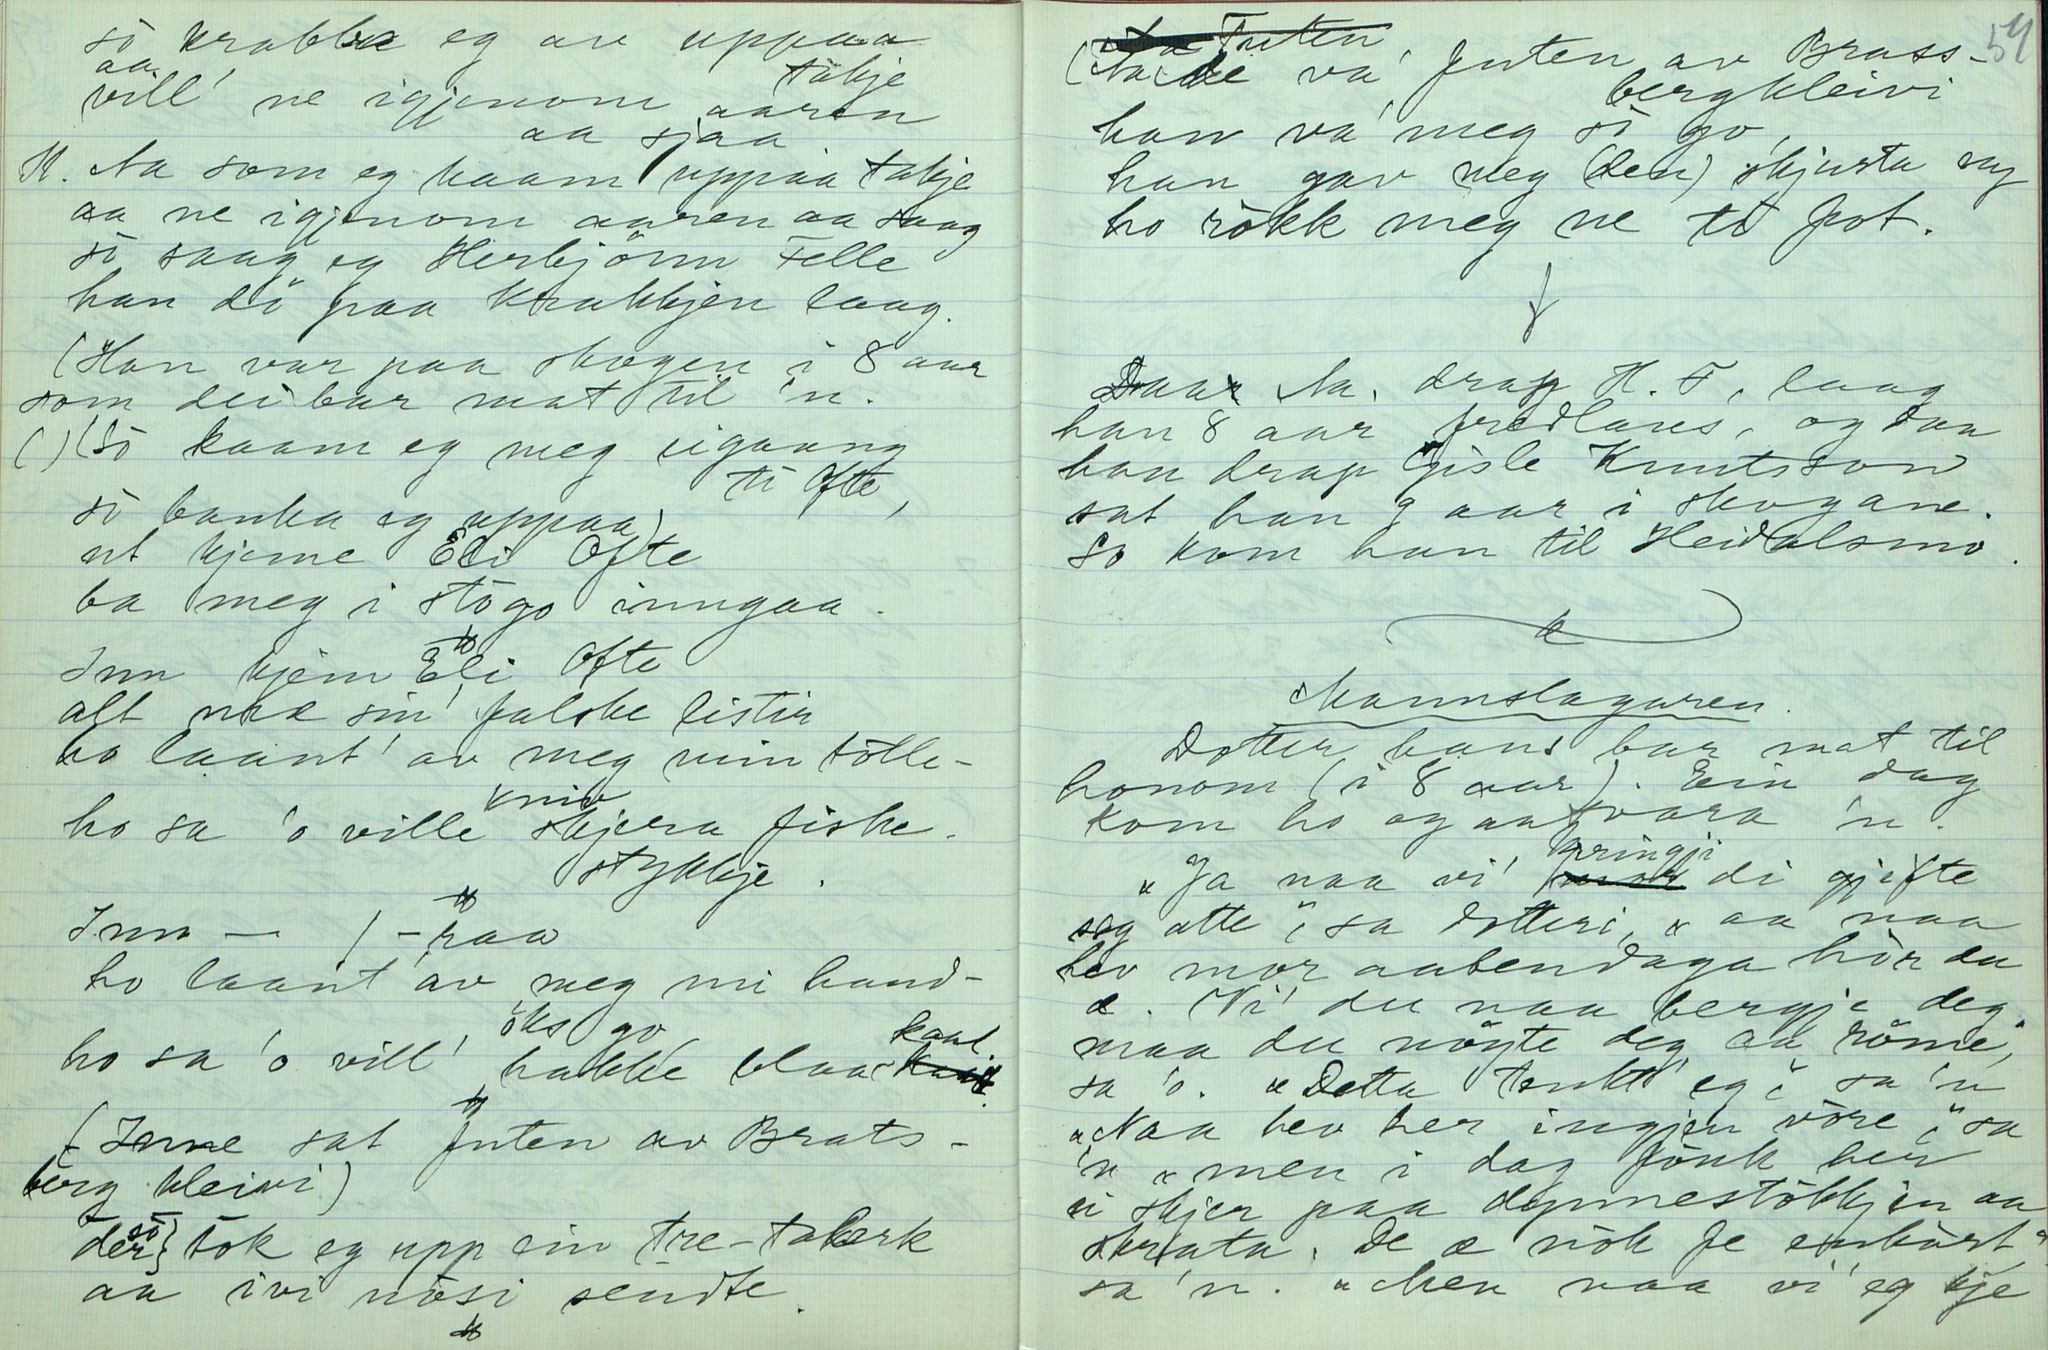 så krabba eg av uppaa
takje
aa
vill' ne igjenom aaren
aa sjaa
H. Aa som eg kaam uppaa takje
aa ne igjenom aaren aa saag
så saag eg Herbjörn Felle
han då paa krakkjen laag.
(Han var paa skogen i 8 aar
som dei bar mat til 'n.
( ) (Så kaam eg meg igaang
ti Ofte,
så banka eg uppaa)
ut kjeme Eli Ofte
ba meg i stogo inngaa.
Inn kjem Eli Ofte
alt mæ sin' falske listir
ho laant' av meg min tölle-
kniv
ho sa 'o ville skjera fiske-
stykkje.
Inn — / - raa
ho laant' av meg mi hand-
öks go
ho sa 'o vill' hakke blaa-kaal
(Inne sat futen av Brats-
berg kleivi)
der så tok eg upp ein tre-talerk
aa ivi nösi sendte.
54
Futen
(Aa de va' futen av Brass-
bergkleivi
han va' meg så go,
han gav meg (den) skjurta ny
ho rökk meg ne ti fot.
Daa Aa. drap H. F, laag
han 8 aar fredlaus, og daa
han drap Gisle Knutsson
sat han 9 aar i skogane.
So kom han til Heidalsmo.
Mannslagaren.
Dotter hans bar mat til
honom (i 8 aar). Ein dag
kom ho og aatvara 'n.
kringji
"Ja naa vi' di gjifte
seg atte", sa dotteri, "aa naa
hev mor aabendaga hör du
æ. Vi' du naa bergje deg,
maa du nöyte deg aa röme",
sa 'o. "Detta tenkt' eg", sa 'n
"Naa hev her ingjen våre", sa
'n "men i dag fauk her
ei skjer paa dynnestokkjen aa
skrata. De æ nok fe enkort"
sa 'n. "Men naa vi' eg kje